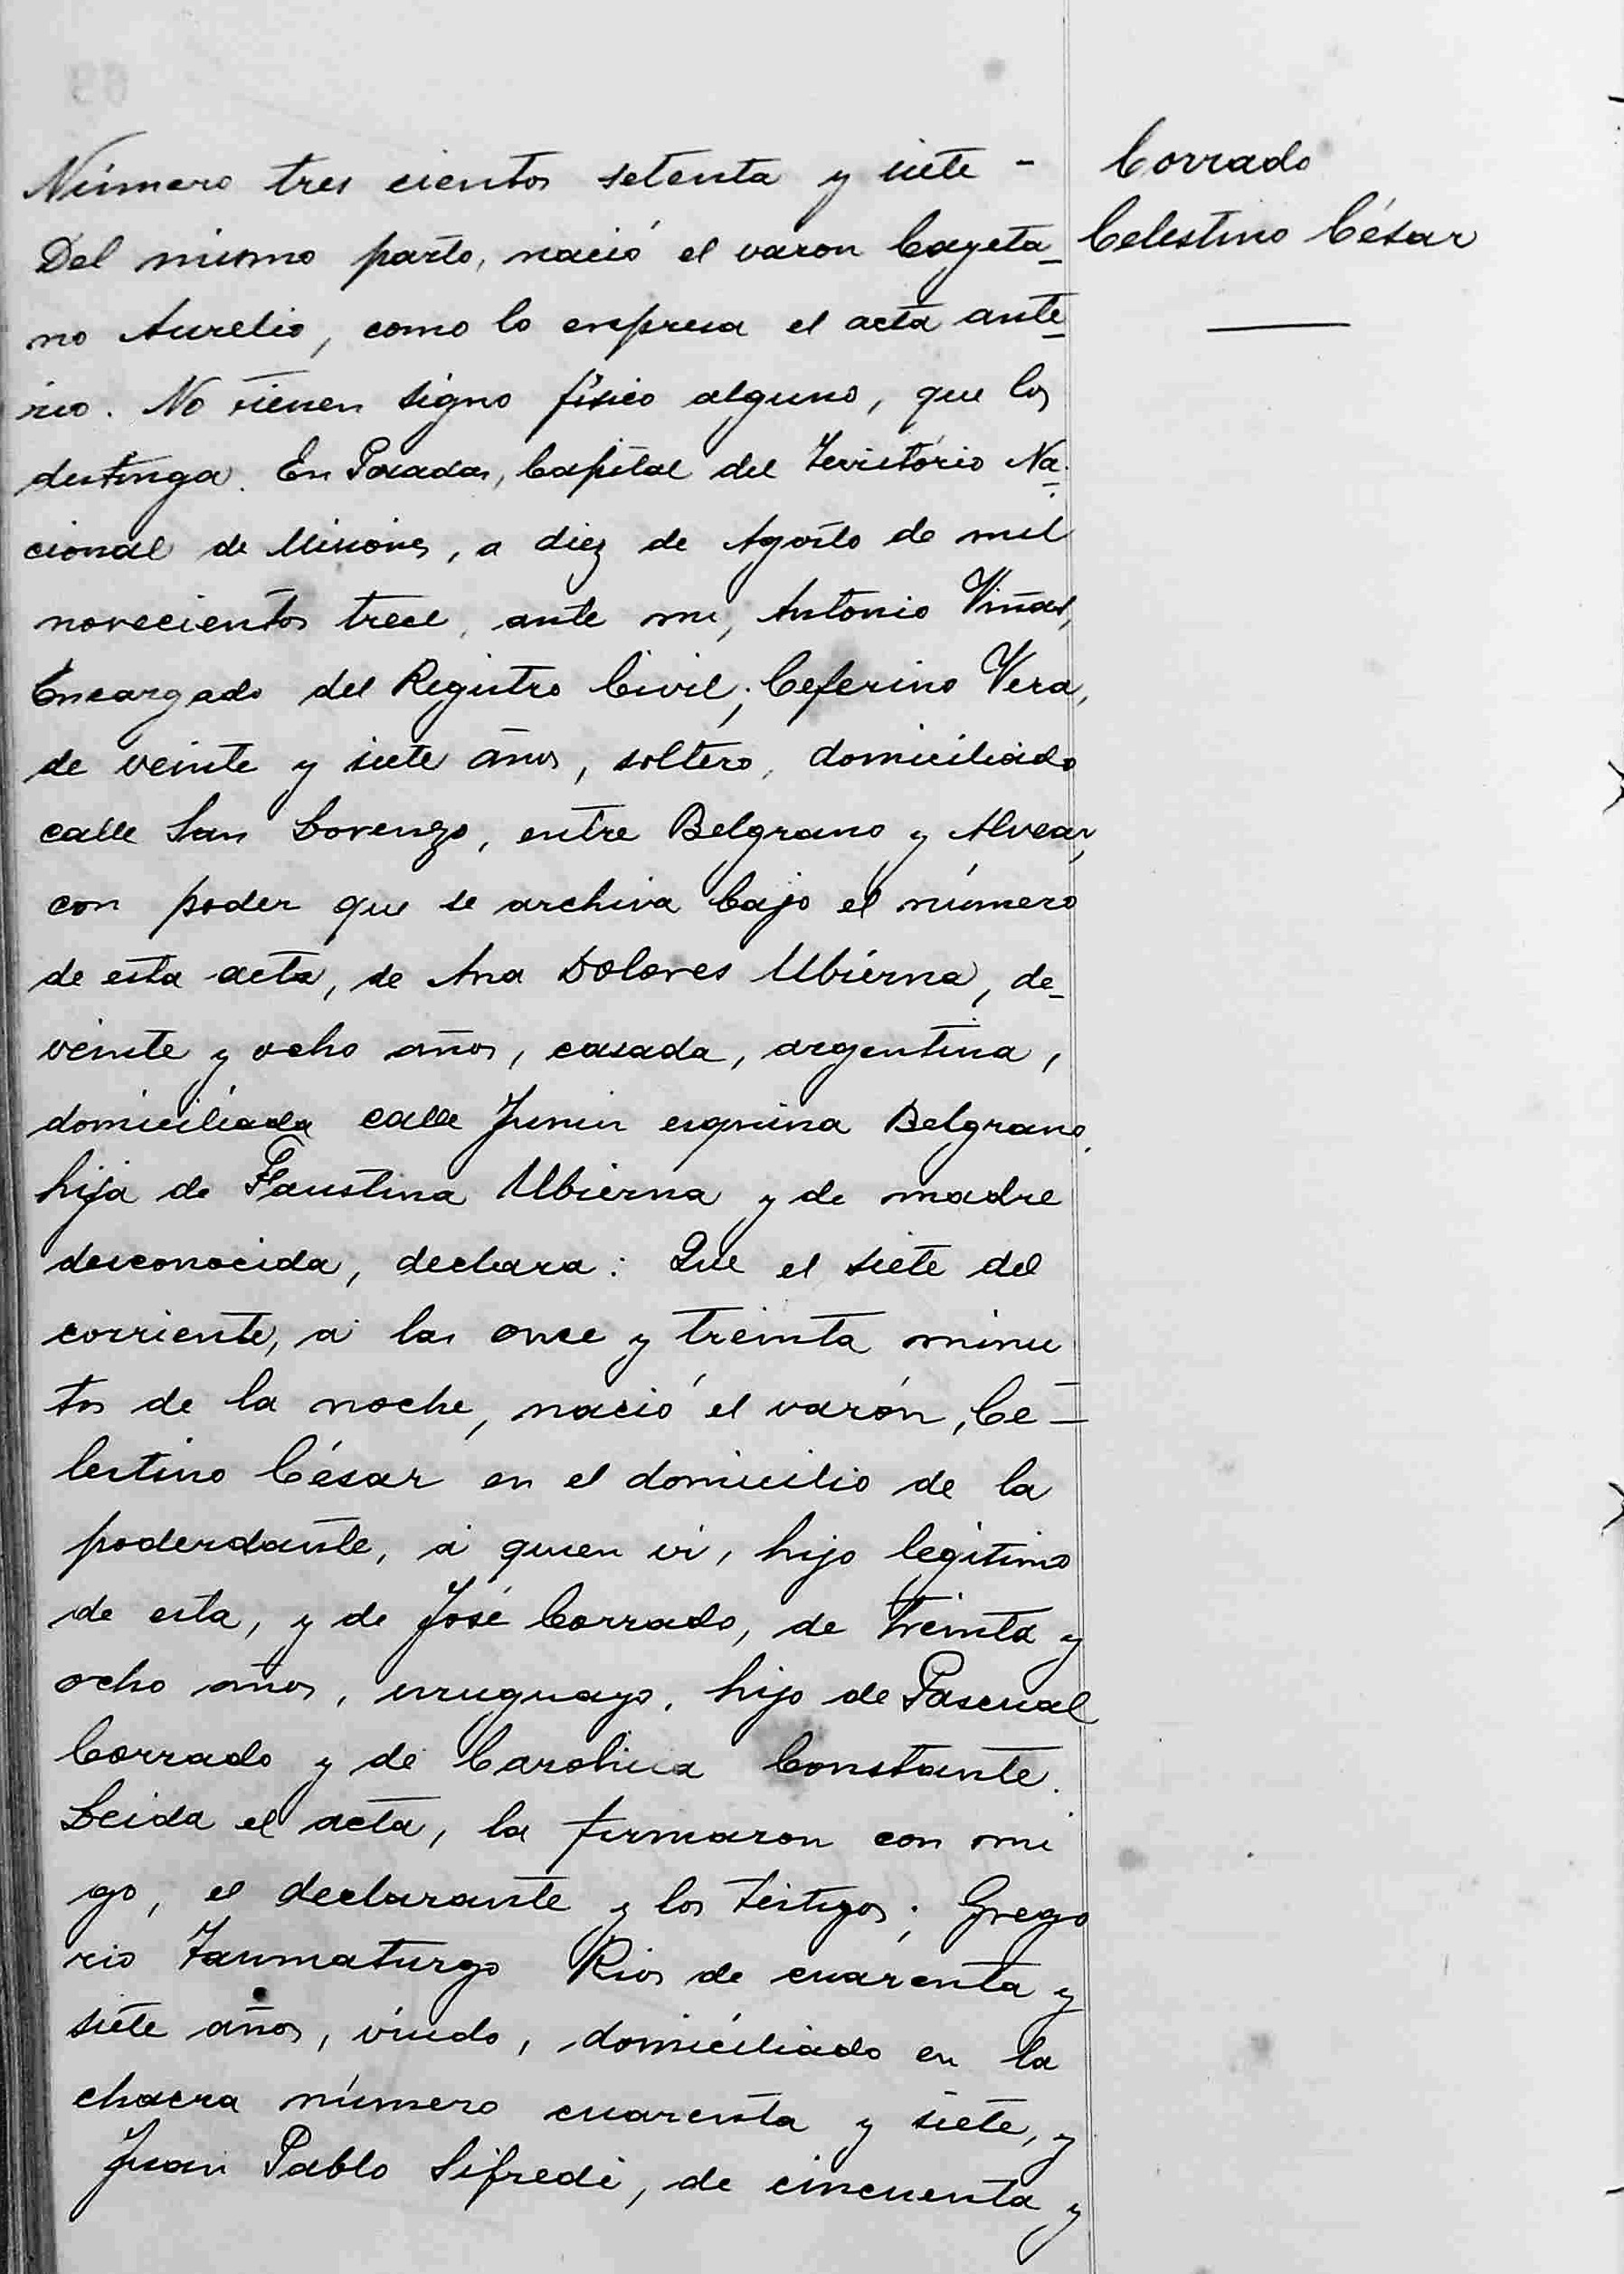 Número tres cientos setenta y siete -
Corrado
Celestino César
Del mismo parto, nació el varon Cayeta-
no Aurelio, como lo expresa el acta ante-
rior. No tienen signo físico alguno, que los
distinga. En Posadas, Capital del Territorio Na-
cional de Misiones, a diez de Agosto de mil
novecientos trece, ante mi, Antonio Viñas,
Encargado del Registro Civil; Ceferino Vera,
de veinte y siete años, soltero, domiciliado
calle San Lorenzo, entre Belgrano y Alvear,
con poder que se archiva bajo el número
de esta acta, de Ana Dolores Ubierna, de-
veinte y ocho años, casada, argentina,
domiciliada calle Junin esquina Belgrano,
hija de Faustina Ubierna y de madre
desconocida, declara: Que el siete del
corriente, a las once y treinta minu-
tos de la noche, nació el varón, Ce-
lestino César en el domicilio de la
poderdante, á quien vi, hijo legítimo
de esta, y de José Corrado, de treinta y
ocho años, uruguayo, hijo de Pascual
Corrado y de Carolina Constante.
Leida el acta, la firmaron con mi
go, el declarante y los testigos; Grego
rio Taumaturgo Rios de cuarenta y
siete años, viudo, domiciliado en la
chacra número cuarenta y siete, y
Juan Pablo Sifredi, de cincuenta y